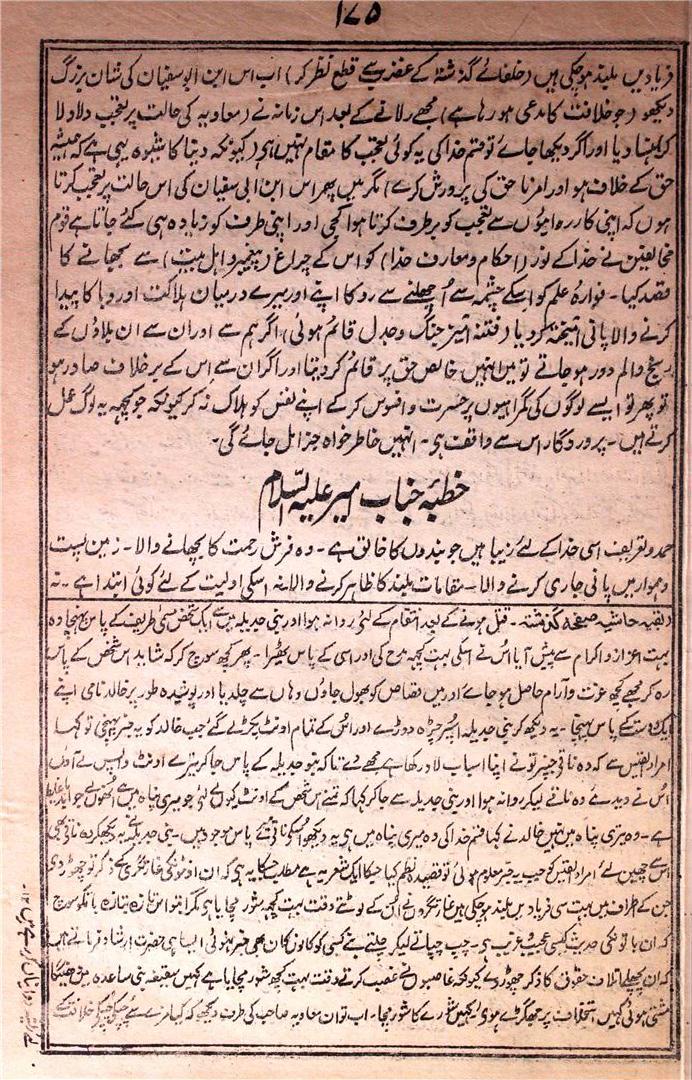 ۱۷۵
فریادیں بلند ہوچکی ہیں (خلفائے گذشتہ کے غصب سے قطع نظر کر) اب اس ابن ابوسفیان کی شان بزرگ
دیکھو (جو خلافت کا مدعی ہو رہا ہے) مجھے رلانے کے بعد اس زمانہ نے (معاویہ کی حالت پر تعجب دلا دلا
کر) ہنسا دیا اور اگر دیکھا جائے تو قسم خدا کی یہ کوئی تعجب کا مقام نہیں ہے (کیونکہ دنیا کا شیوہ یہی ہے کہ ہمیشہ
حق کے خلاف ہو اور امر ناحق کی پرورش کرے) مگر میں پھر اس ابن ابی سفیان کی اس حالت پر تعجب کرتا
ہوں کہ اپنی کارروائیوں سے تعجب کو برطرف کرتا ہوا کجی اور اپنی طرف کو زیادہ ہی کئے جاتا ہے قوم
مخالفین نے خدا کے نور (احکام و معارف خدا) کو اس کے چراغ (پیغمبر و اہل بیت) سے بجھانے کا
قصد کیا۔ فوارہ علم کو اسکے چشمہ سے اُچھلنے سے روکا اپنے اور میرے درمیان ہلاکت اور وبا کا پیدا
کرنے والا پانی آمیختہ کر دیا (فتنہ انگیز جنگ و جدل قائم ہوئی) اگر ہم سے اور ان سے ان بلاؤں کے
رنج و الم دور ہو جاتے تو میں انہیں خالص حق پر قائم کر دیتا اور اگر ان سے اس کے برخلاف صادر ہو
تو پھر تو ایسے لوگوں کی گمراہیوں پر حسرت و افسوس کر کے اپنے نفس کو ہلاک نہ کر کیونکہ جو کچھ یہ لوگ عمل
کرتے ہیں۔ پروردگار اس سے واقف ہے۔ انہیں خاطر خواہ جزا مل جائے گی۔
خطبۂ جناب امیر علیہ السّلام
حمد و تعریف اسی خدا کے لئے زیبا ہیں جو بندوں کا خالق ہے۔ وہ فرش رحمت کا بچھانے والا۔ زمین پست
و ہموار میں پانی جاری کرنے والا۔ مقامات بلند کا ظاہر کرنے والا نہ اسکی اولیت کے لئے کوئی ابتدا ہے۔ نہ
(بقیہ حاشیہ صفحہ گذشتہ۔ قتل ہونے کے بعد انتقام کے لئے روانہ ہوا اور بنی جدیلہ میں سے ایک شخص مسمیٰ طریف کے پاس پہنچا وہ
بہت اعزاز و اکرام سے پیش آیا اس نے اسکی بہت کچھ مدح کی اور اسی کے پاس ٹھیرا۔ پھر کچھ سوچ کر کہ شاید اس شخص کے پاس
رہ کر مجھے کچھ عزت و آرام حاصل ہو جائے اور میں قصاص کو بھول جاؤں وہاں سے چلدیا اور پوشیدہ طور پر خالد نامی اپنے
ایک دوست کے پاس پہنچا۔ یہ دیکھ کر بنی جدیلہ اسپر چڑھ دوڑے اور اس کے تمام اونٹ پکڑ لے گئے جب خالد کو یہ خبر پہنچی تو کہا
امراء القیس سے کہ وہ ناقے جنپر تو نے اپنا اسباب لاد رکھا ہے مجھے دے تاکہ بنو جدیلہ کے پاس جا کر تیرے اونٹ واپس لے آؤں
اس نے دیدئے وہ ناقے لیکر روانہ ہوا اور بنی جدیلہ سے جا کر کہا کہ تمنے اس شخص کے اونٹ کیوں لئے جو میری پناہ میں ہے
ہے۔ وہ تیری پناہ میں نہیں خالد نے کہا قسم خدا کی وہ میری پناہ میں ہے یہ دیکھو اسکے ناقے میرے پاس موجود ہیں۔ بنی جدیلہ نے یہ دیکھکر وہ ناقے بھی
اس سے چھین لئے امراء القیس کو جب یہ خبر معلوم ہوئی تو قصیدہ نظم کیا جسکا ایک شعر یہ ہے مطلب جسکا یہ ہے کہ ان اونٹوں کی غارتگری کے ذکر کو چھوڑ دے
جن کے اطراف میں بہت سی فریادیں بلند ہوچکی ہیں غارتگروں نے اس کے لوٹتے وقت بہت کچھ شور مچایا ہے مگر اب تو اس تازہ بات کو سوچ
کہ ان ناقوں کی حدیث کیسی عجیب و غریب ہے۔ چپ چپاتے لیکر چلتے بنے کسی کو کانوں کان بھی خبر نہ ہوئی ایسا ہی حضرت ارشاد فرماتے ہیں
کہ ان پچھلے اتلاف حقوق کا ذکر چھوڑ دے کیونکہ غاصبوں نے غصب کرتے وقت بہت کچھ شور مچایا ہے کہیں سقیفہ بنی ساعدہ میں
مشتی ہوئی کہیں استخلاف پر جھگڑے ہوئے کہیں شوریٰ کا شور مچا۔ اب تو ان معاویہ صاحب کی طرف دیکھ کہ کیا مزے سے چپکے چپکے خلافت کے